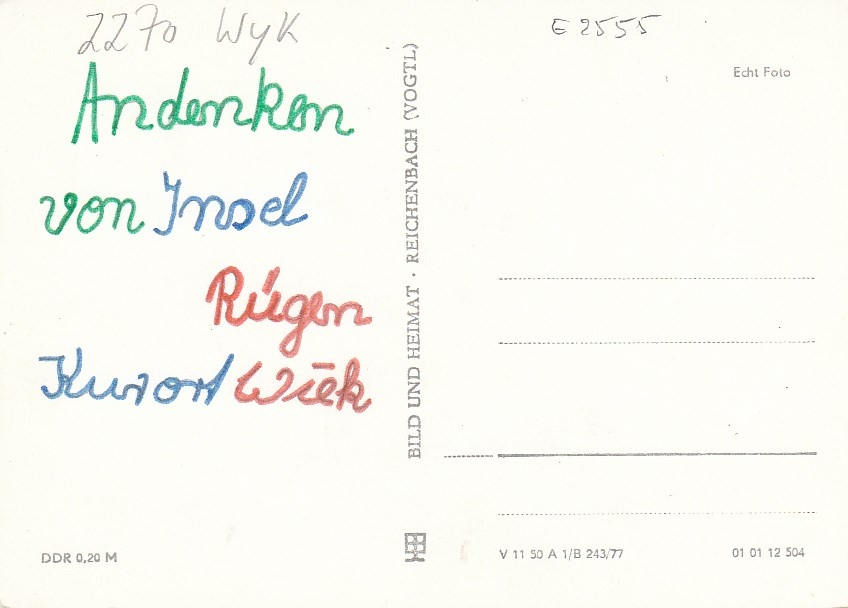 2270 Wyk
E 2555
Echt Foto
Andenken
von Insel
Rügen
Kurort Wiek
BILD UND HEIMAT · REICHENBACH (VOGTL)
DDR 0,20 M
V 11 50 A 1/B 243/77
01 01 12 504